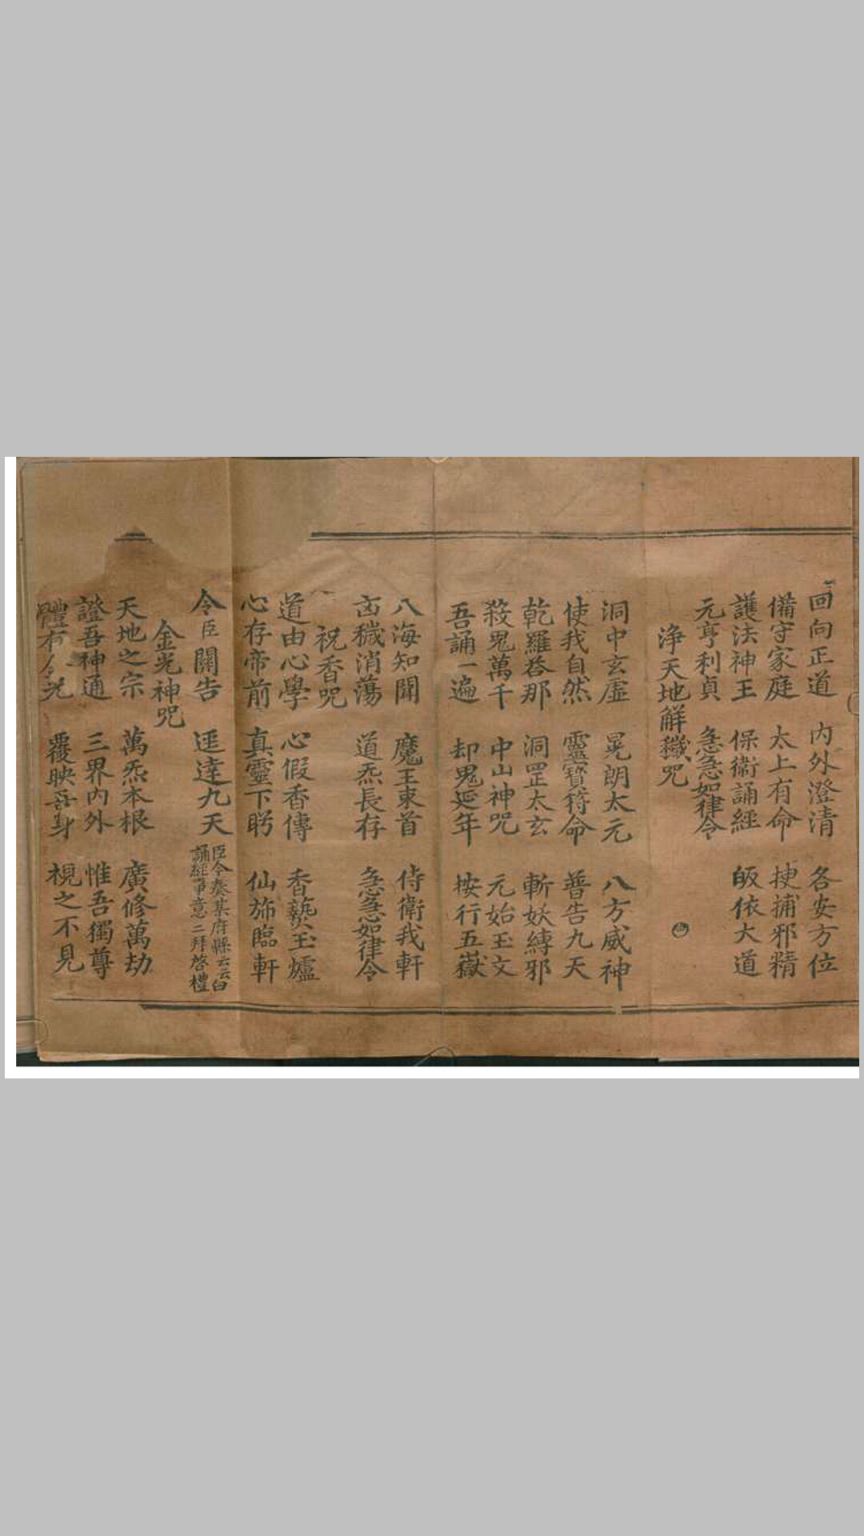 回向正道 內外澄清 各安方位
備守家庭 太上有命 捜捕邪精
護法神王 保衛誦經 皈依大道
元亨利貞 急急如律令
淨天地解穢咒
洞中玄虛 晃朗太元 八方威神
使我自然 靈寶符命 普告九天
乾羅荅那 洞罡太玄 斬妖縛邪
殺鬼萬千 中山神咒 元始玉文
吾誦一遍 却鬼延年 按行五嶽
八海知聞 魔王束首 侍衛我軒
㐫穢消蕩 道炁長存 急急如律令
祝香咒
道由心學 心假香傳 香爇玉爐
心存帝前 真靈下盻 仙斾臨軒
令臣關告 逕達九天 臣今奏某府縣云云白
誦經事意二拜啓禮
金光神咒
天地之宗 萬炁本根 廣修萬劫
證吾神通 三界內外 惟吾獨尊
體有金光 覆映吾身 視之不見